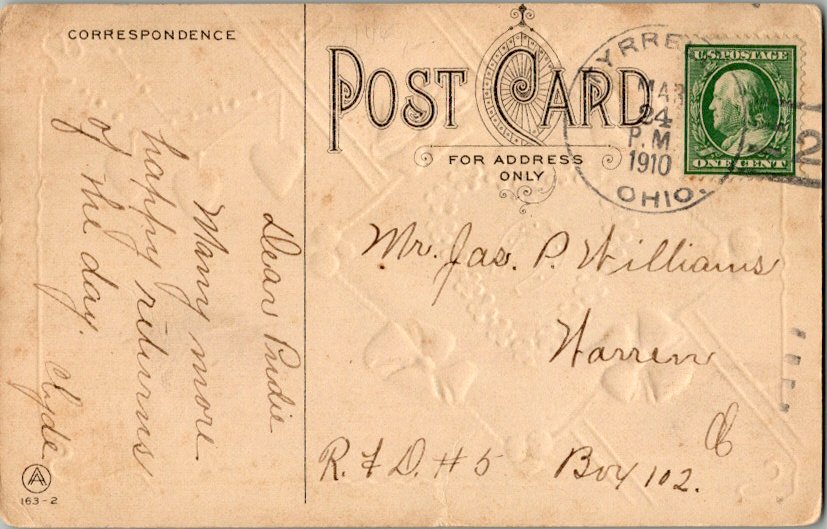 CORRESPONDENCE
Dear Pridie
Many more
happy returns
of the day.
Clyde
POST CARD
FOR ADDRESS
ONLY
MAR
24
P.M.
1910
OHIO.
U.S. POSTAGE
ONE CENT
2
Mr. Jas. P. Williams
Warren
R. F. D. # 5 Box 102.
A
163-2